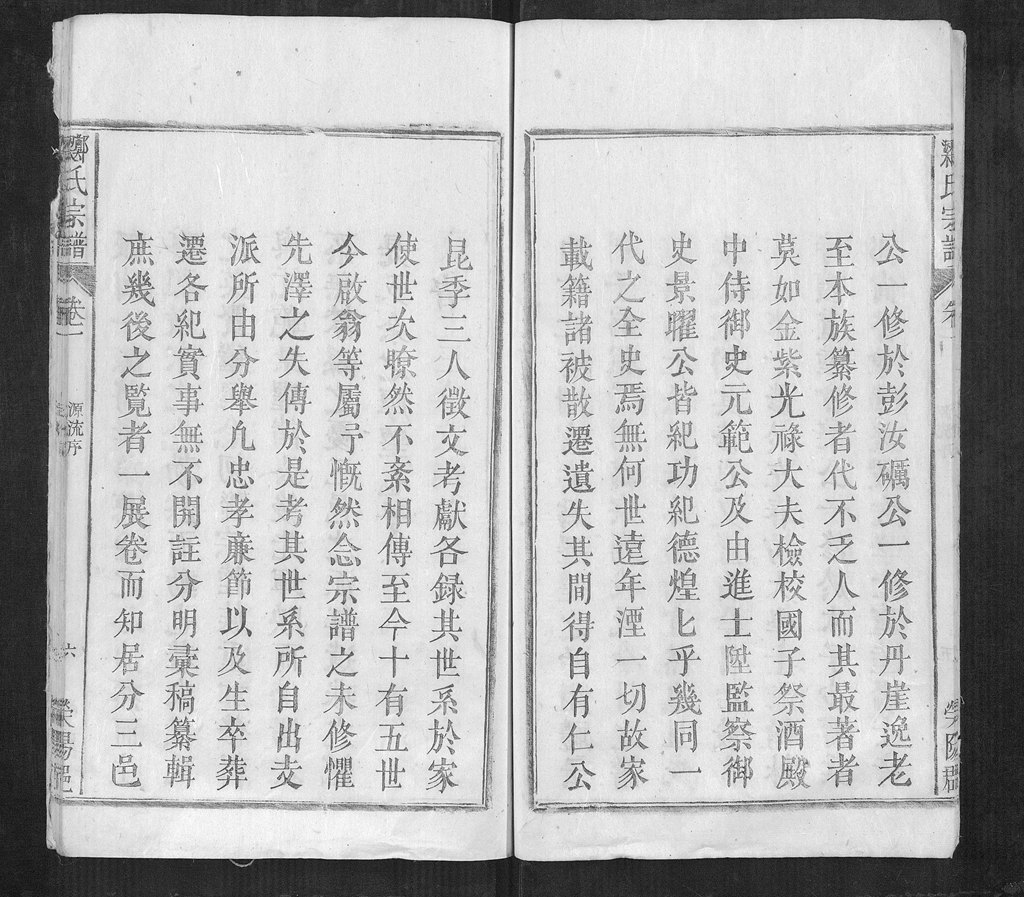 公一修於彭汝礪公一修於丹崖逸老
至本族纂修者代不乏人而其最著者
莫如金紫光祿大夫檢校國子祭酒殿
中侍御史元範公及由進士陞監察御
史景曜公皆紀功紀德煌匕乎幾同一
代之全史焉無何世遠年湮一切故家
載籍諸被散遷遺失其間得自有仁公
昆季三人徵文考獻各錄其世系於家
使世次瞭然不紊相傳至今十有五世
今啟翁等屬予慨然念宗譜之未修懼
先澤之失傳於是考其世系所自出支
派所由分舉凢忠孝廉節以及生卒葬
遷各紀實事無不開註分明彙稿纂輯
庶幾後之覽者一展卷而知居分三邑
氏宗譜
卷一
源流序
六